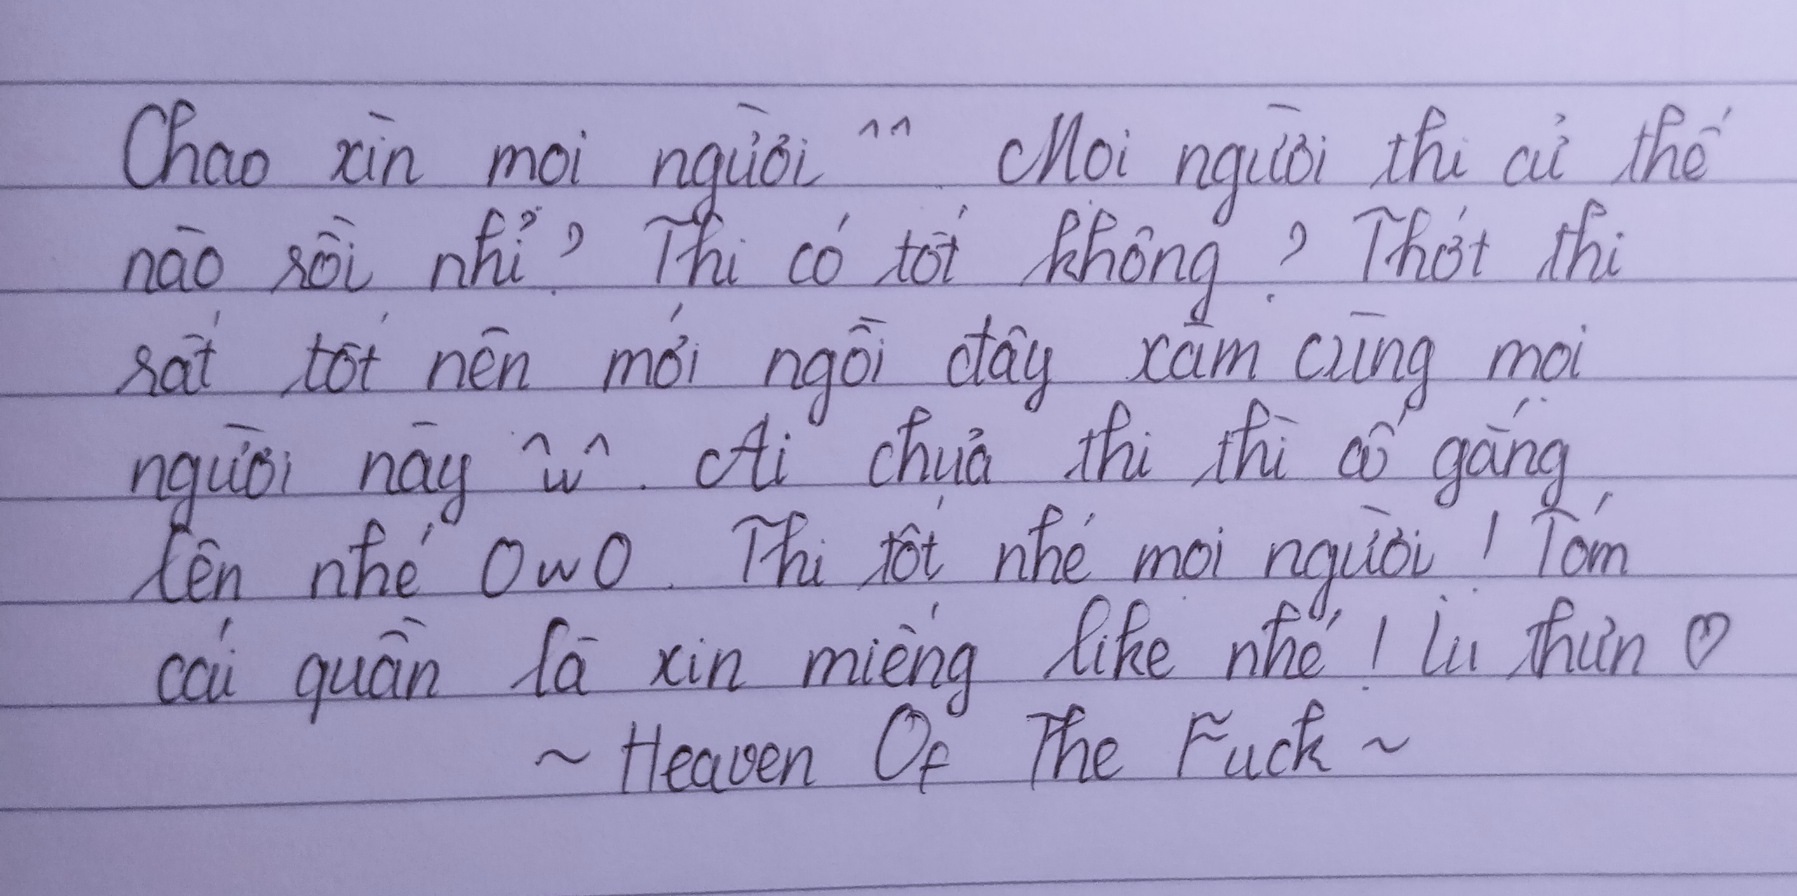 Chao xin moi người ^^ Moi người thi cử thế
nào rồi nhỉ? Thi có tốt không? Thớt thi
rất tốt nên mới ngồi đây xàm cùng moi
người này ^w^. Ai chưa thi thì cố gắng
lên nhé OwO. Thi tốt nhé moi người! Tóm
cái quần là xin miếng like nhé! Lù thưn ♡
~ Heaven Of The Fuck ~